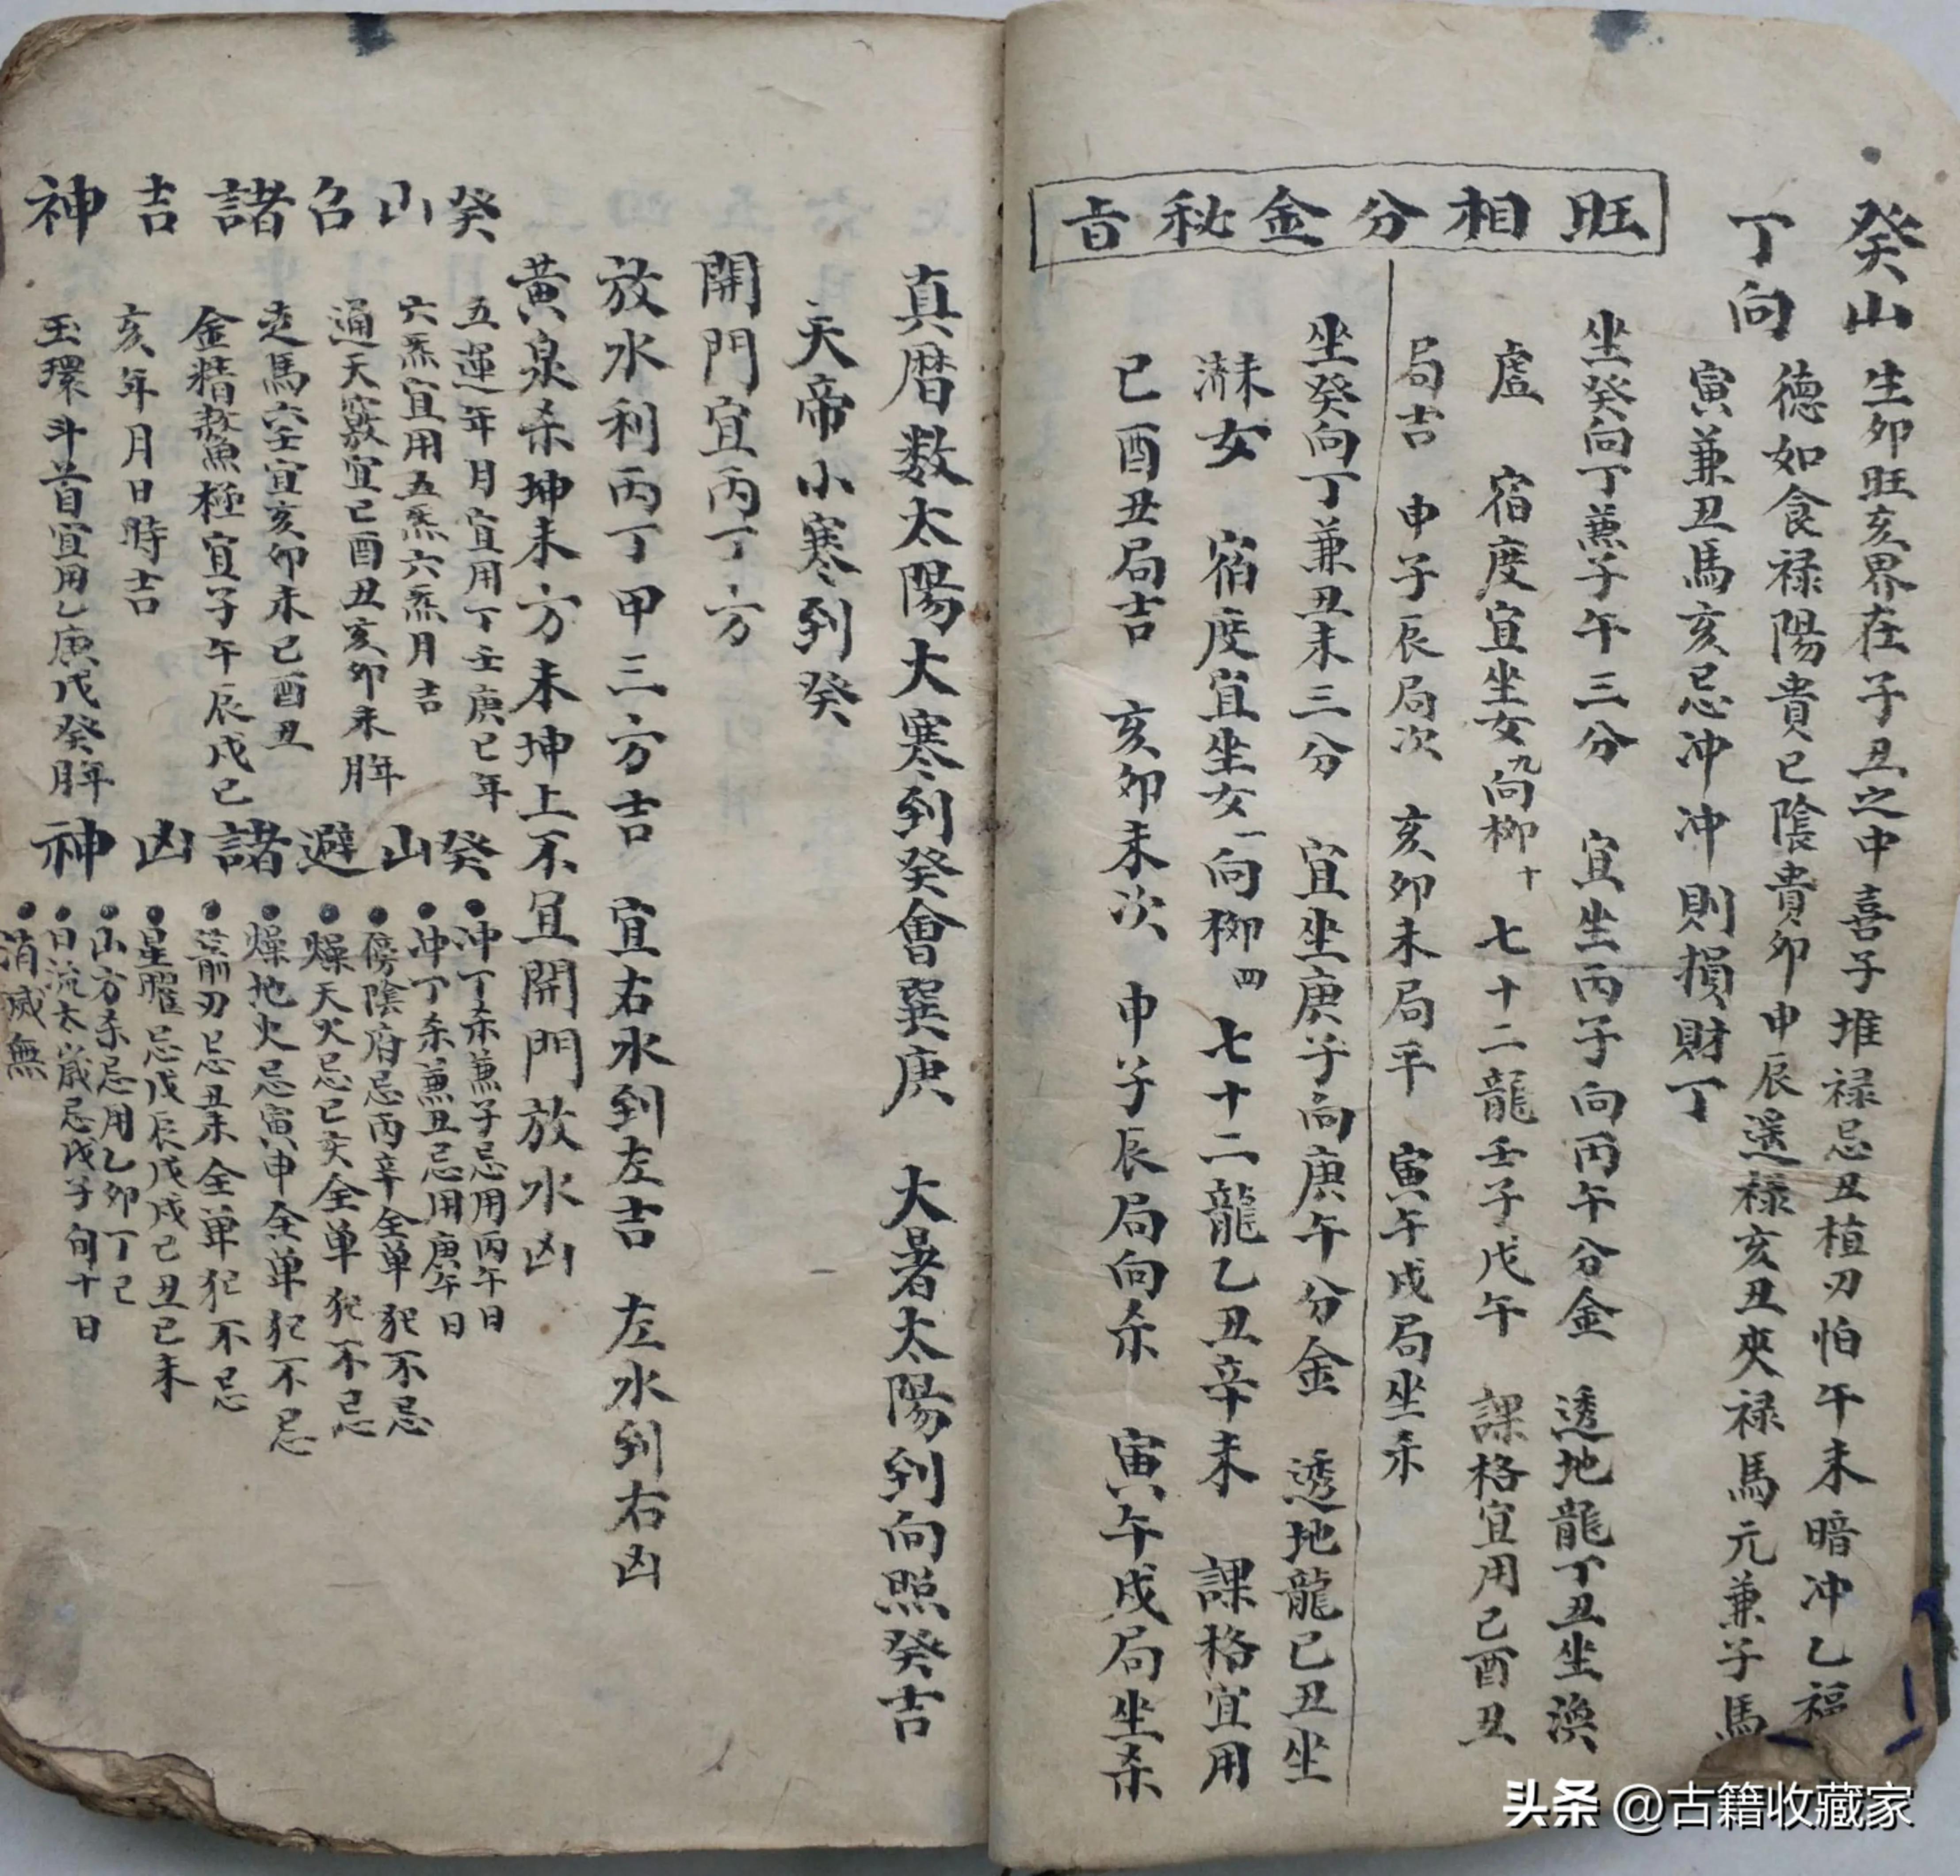 癸山
丁向
生卯旺亥界在子丑之中喜子堆禄忌丑植刃怕午未暗冲乙福
德如食禄陽貴巳陰貴卯申辰遥禄亥丑夾禄馬元兼子馬
寅兼丑馬亥忌冲冲則損財丁
旺相分金秘旨
坐癸向丁兼子午三分 宜坐丙子向丙午分金 透地龍丁丑坐渙
虚 宿度宜坐女九向柳十 七十二龍壬子戊午 課格宜用巳酉丑
局吉 申子辰局次 亥卯未局平 寅午戌局坐杀
坐癸向丁兼丑未三分 宜坐庚子向庚午分金 透地龍己丑坐
女 宿度宜坐女一向柳四 七十二龍乙丑辛未 課格宜用
巳酉丑局吉 亥卯未次 申子辰局向杀 寅午戌局坐杀
真暦数太陽大寒到癸會巽庚 大暑太陽到向照癸吉
天帝小寒到癸
開門宜丙丁方
放水利丙丁甲三方吉 宜右水到左吉 左水到右凶
黄泉杀坤未方未坤上不宜開門放水凶
癸山召諸吉神
五運年月宜用丁壬庚巳年
六炁宜用五炁六炁月吉
通天竅宜巳酉丑亥卯未年月
走馬六壬宜亥卯未巳酉丑
金精鰲極宜子午辰戌巳
亥年月日時吉
玉環斗首宜用乙庚戊癸年月
癸山避諸凶神
冲丁杀兼子忌用丙午日
冲丁杀兼丑忌用庚午日
傍陰府忌丙辛全單犯不忌
燥天火忌巳亥全單犯不忌
燥地火忌寅申全單犯不忌
箭刃忌丑未全單犯不忌
星曜忌戊辰戊戌己丑己未
山方杀忌用乙卯丁巳
日流太歲忌戊子旬十日
消滅無
头条 @古籍收藏家